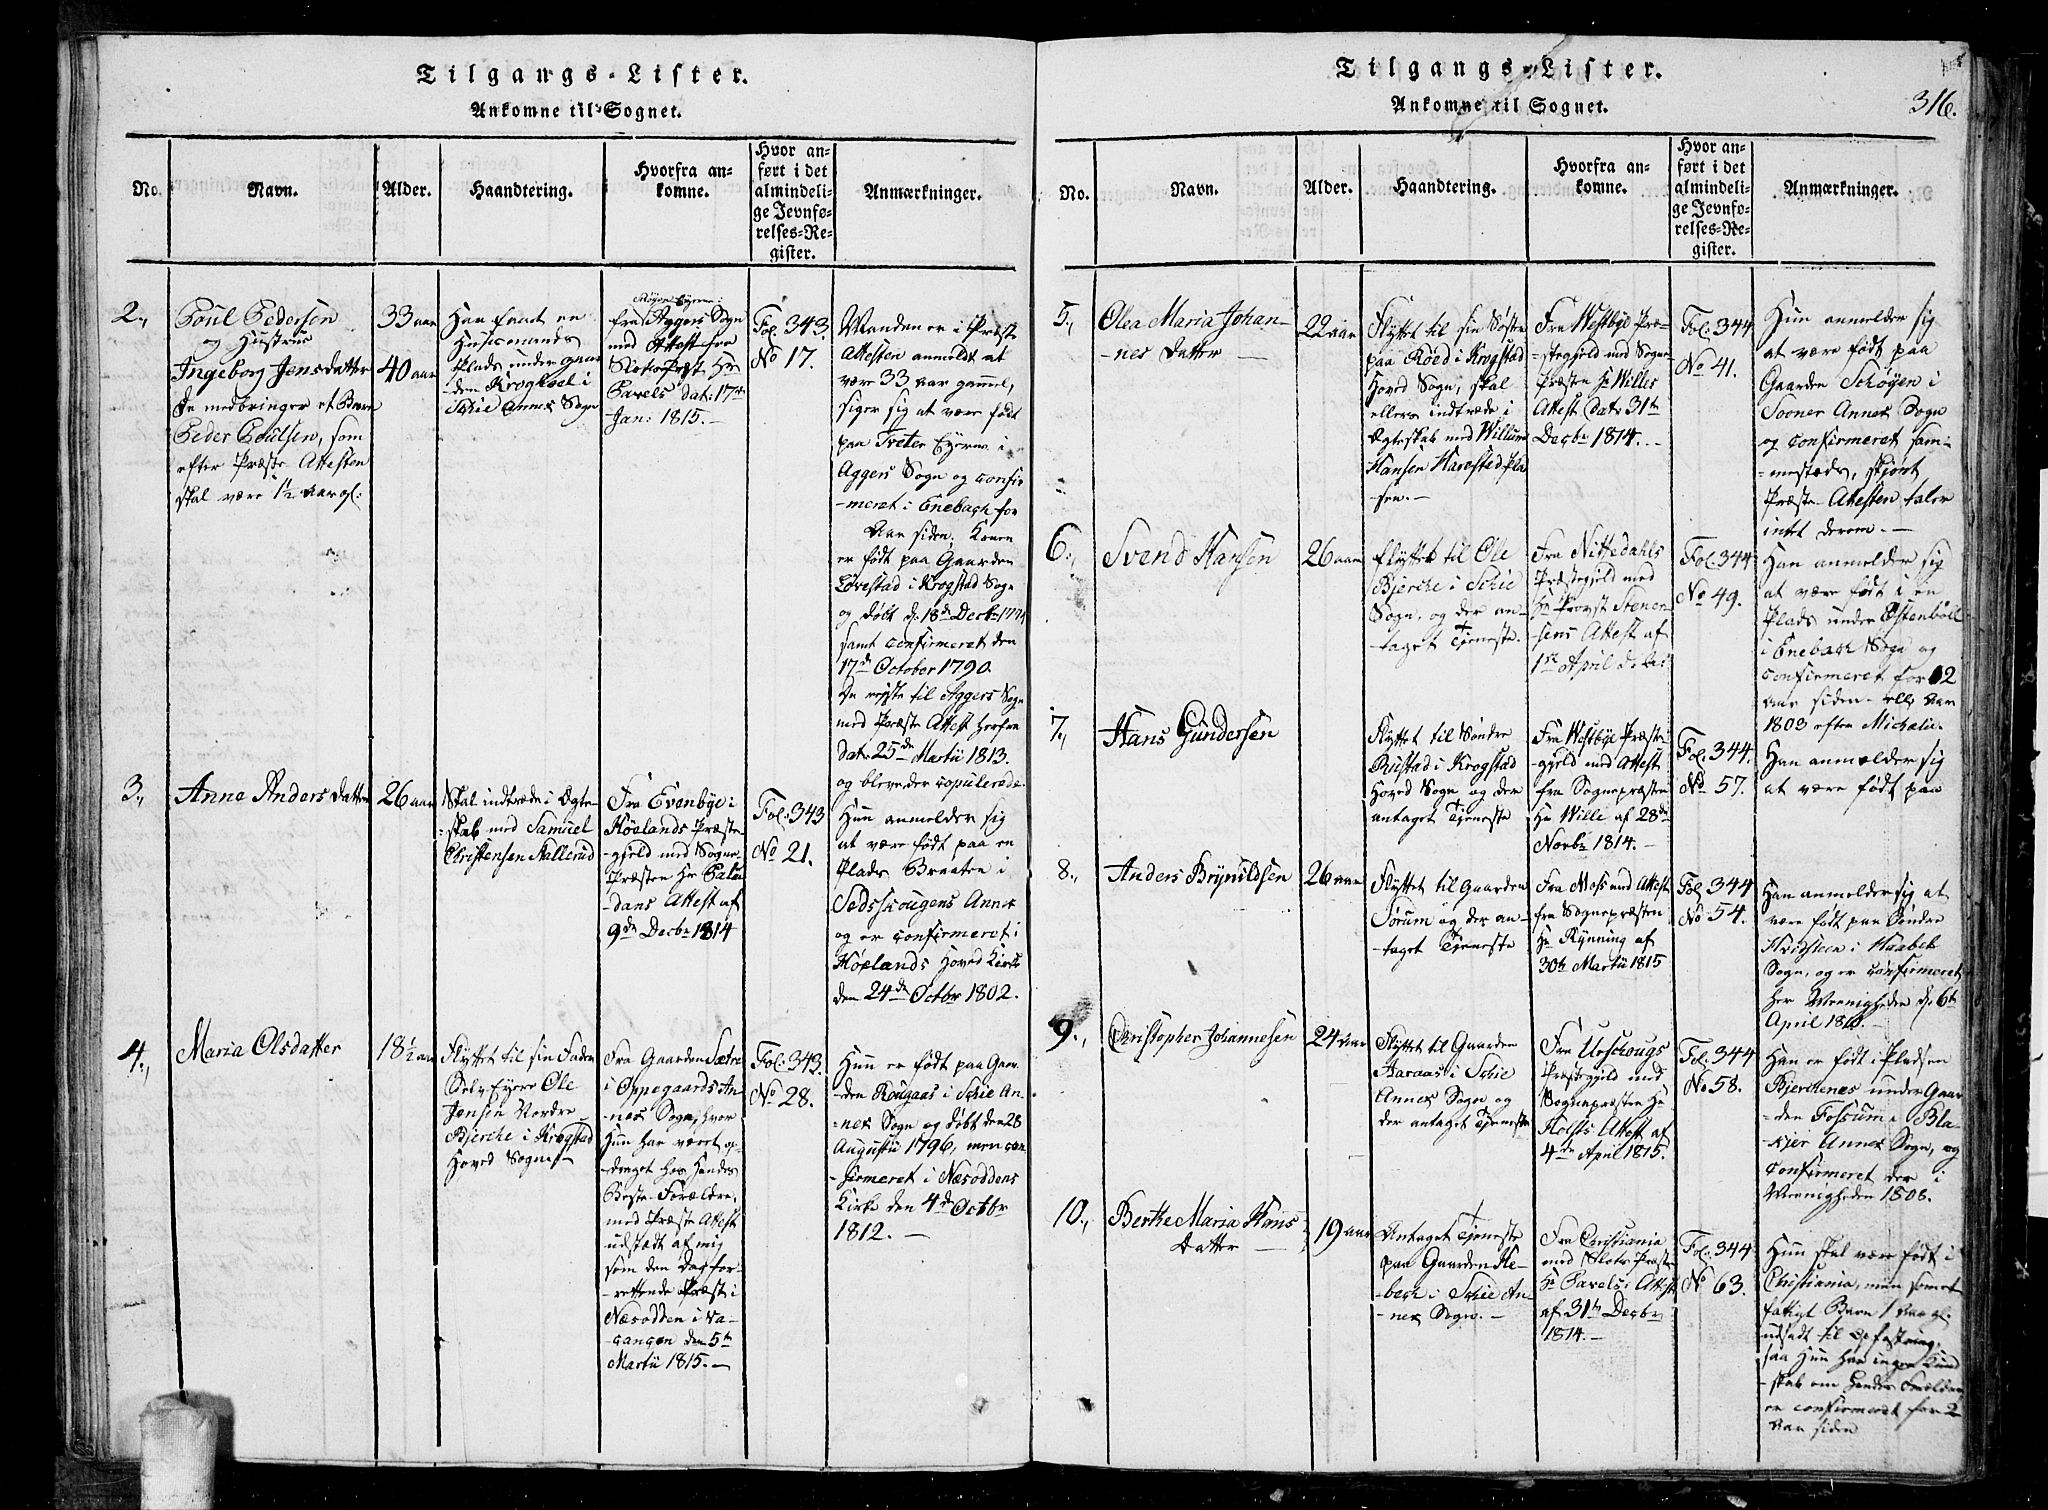 Tilgangs-Lister.
Ankomne til Sognet.
No.
Navn.
Alder.
Haandtering.
Hvorfra an-
komne.
Hvor an-
ført i det
almindeli-
ge Jevnfø-
relses-Re-
gister.
Anmærkninger.
2.,
Poul Pedersen
og Hustrue
Ingeborg Jensdatter
De medbringer et Barn
Peder Poulsen, som
efter Præste Attesten
skal være 1½ Aar gl:
33 aar
40 aar
Har faaet en
Huusmands
Plads under Gaar
den Krogsbøl i
Schie Annex Sogn
fra Aggers Sogn
med Attest fra
Slotspræst Hr
Pavels dat: 17de
Jan: 1815.–
Fol: 343.
No 17.
Manden er i Præste
Attesten anmeldt at
være 33 aar gammel,
siger sig at være født
paa Tveter Eyerne i
Aggers Sogn og confir
-meret i Enebagh for
Aar siden. Konen
er født paa Gaarden
Løvestad i Krogstad Sogn
og døbt d: 18de Decbr 1774
samt confirmeret den
17de October 1790.
De reyste til Aggers Sogn
med Præste Attest herfra
dat: 25de Martii 1813.
og bleve der copulerede.
3.,
Anne Andersdatter
26 aar
Skal indtræde i Ægte-
-skab med Samuel
Christensen Stallerud
Fra Evenbye i
Høelands Præste-
-gjeld med Sogne-
Præsten Hr Palu
-dans Attest af
9de Decbr 1814
Fol: 343
No 21.
Hun anmelder sig
at være født paa en
Plads Braaten i
Sedsskougens Annex
og er confirmeret i
Høelands Hoved Kirke
den 24de Octbr 1802.
4.,
Maria Olsdatter
18½ aar
Flyttet til sin Fader
Selv Eyere Ole
Jensen Nordre
Bjerche i Krogstad
Hoved Sogn –
Fra Gaarden Sætre
i Oppegaards An-
nex Sogn, hvor
Hun har været op-
draget hos Hendes
Beste-Forældre,
med Præste Attest
udstædt af mig
som den Dag for-
-rettende Præst i
Næsodden i Va-
-cancen den 5te
Martii 1815.–
Fol: 343.
No 28.
Hun er født paa Gaar
den Kougaas i Schie An-
-nex Sogn og døbt den 28
Augustii 1796, men con-
-firmeret i Næsoddens
Kirke den 4de Octbr
1812.–
Tilgangs-Lister.
Ankomne til Sognet.
316.
No.
Navn.
Alder.
Haandtering.
Hvorfra an-
komne.
Hvor an-
ført i det
almindeli-
ge Jevnfø-
relses-Re-
gister.
Anmærkninger.
5.,
Olea Maria Johan-
-nes Datter –
22 aar
Flyttet til sin Søster
paa Røed i Krogstad
Hoved Sogn, skal
ellers indtræde i
Ægteskab med Willum
Hansen Harestad Pla
-sen.–
Fra Westbye Præ-
-stegjeld med Sogne
Præsten Hr Willes
Attest dat: 31te
Decbr 1814.–
Fol: 344
No 41.
Hun anmelder sig
at være født paa
Gaarden Schøyen i
Sooner Annex Sogn
og confirmeret sam-
-mestæds, skjønt
Præste Attesten taler
intet derom.–
6.,
Svend Hansen
26 aar
flyttet til Ole
Bjerche i Schie
Sogn, og der an-
-taget Tjeneste.
Fra Nittedahls
Præstegjeld med
Hr Provst Stener-
-sens Attest af
1ste April
Fol: 344
No 49.
Han anmelder sig
at være født i en
Plads under Østenbøl
i Enebagh Sogn og
confirmeret for 12
aar siden – Aar
1803 efter Michaelii.
7.,
Hans Gundersen
Flyttet til Søndre
Rustad i Krogstad
Hoved Sogn og der
antaget Tjeneste
Fra Westbye Præste-
-gjeld med Attest
fra Sognepræsten
Hr Wille af 28de
Novbr 1814.–
Fol: 344.
No 57.
Han anmelder sig
at være født paa
8.,
Anders Brynildsen
26 aar
Flyttet til Gaarden
Sørum og der an-
-taget Tjeneste
Fra Moss med Attest
fra Sognepræsten
Hr Rynning af
30te Martii 1815
Fol 344
No 54.
Han anmelder sig at
være født paa Søndre
Hvidsteen i Haabøl
Sogn, og er confirmeret
her d: 6te
April
9.,
Christopher Johannesen
24 aar
Flyttet til Gaarden
Aaraas i Schie
Annex Sogn og
der antaget Tjeneste
Fra Urschougs
Præstegjeld med
Sognepræsten Hr
Holsts Attest af
4de April 1815.
Fol: 344
No 58.
Han er født i Pladsen
Bjerchenes under Gaar
-den Fossum i Bla-
-kjer Annex Sogn, og
confirmeret der i
Menigheden 1808.
10.,
Berthe Maria Hans
Datter –
19 aar
Antaget Tjeneste
paa Gaarden He-
-bech i Schie An-
-nex Sogn.–
Fra Christiania
med Slots Præst
Hr Pavels's Attest
af 31te Decbr
1814.–
Fol: 344
No 63.
Hun skal være født i
Christiania, men som et
fattigt Barn 1 Aar gl.
udsadt til Opfostring,
saa Hun har ingen Kund
-skab om Hendes Forældre
er confirmeret for 2
Aar siden